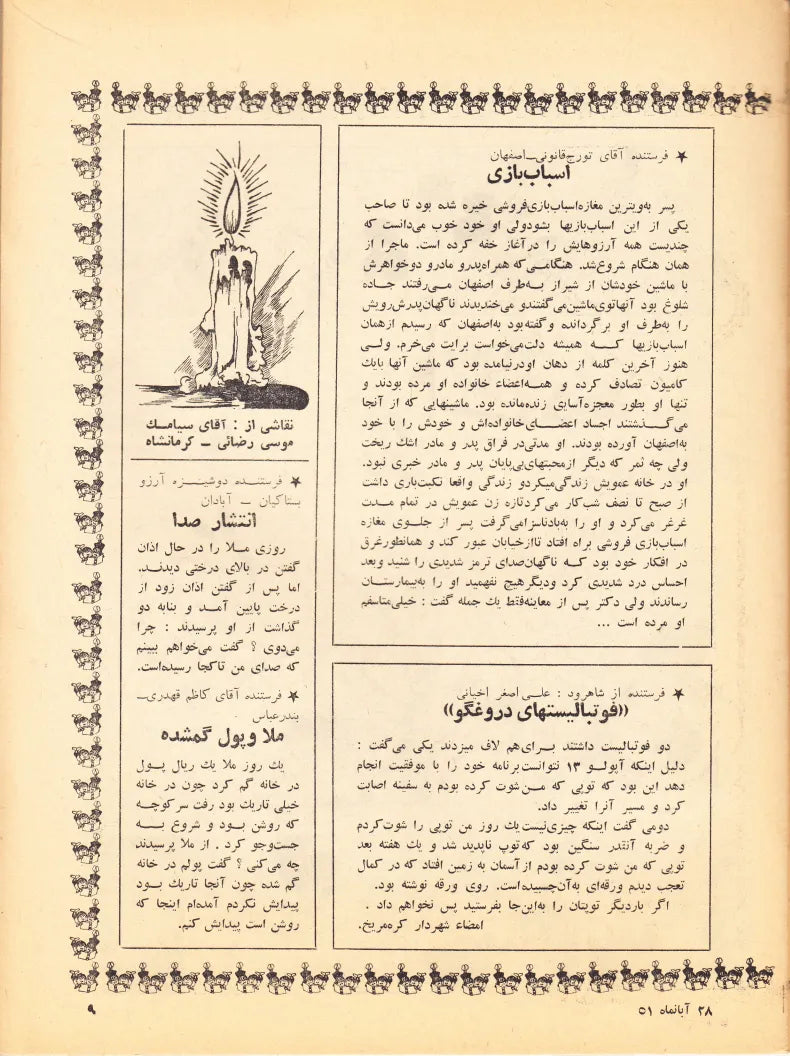 ★ فرستنده آقای تورج‌قانونی‌ـ‌اصفهان
اسباب‌بازی
پسر به‌ویترین مغازه‌اسباب‌بازی‌فروشی خیره شده بود تا صاحب
یکی از این اسباب‌بازیها بشودولی او خود خوب می‌دانست که
چندیست همه آرزوهایش را درآغاز خفه کرده است. ماجرا از
همان هنگام شروع‌شد. هنگامی‌که همراه‌پدرو مادرو دوخواهرش
با ماشین خودشان از شیراز به‌طرف اصفهان می‌رفتند جاده
شلوغ بود آنهاتوی‌ماشین‌می‌گفتندو می‌خندیدند ناگهان‌پدرش‌رویش
را به‌طرف او برگردانده وگفته‌بود به‌اصفهان که رسیدم ازهمان
اسباب‌بازیها که همیشه دلت‌می‌خواست برایت می‌خرم. ولی
هنوز آخرین کلمه از دهان اودرنیامده بود که ماشین آنها بایك
کامیون تصادف کرده و همه‌اعضاء خانواده او مرده بودند و
تنها او بطور معجزه‌آسایی زنده‌مانده بود. ماشینهایی که از آنجا
می‌گذشتند اجساد اعضای‌خانواده‌اش و خودش را با خود
به‌اصفهان آورده بودند. او مدتی‌در فراق پدر و مادر اشك ریخت
ولی چه ثمر که دیگر ازمحبتهای‌بی‌پایان پدر و مادر خبری نبود.
او در خانه عمویش زندگی‌میکردو زندگی واقعا نکبت‌باری داشت
از صبح تا نصف شب‌کار می‌کردتازه زن عمویش در تمام مدت
غرغر می‌کرد و او را به‌بادناسزامی‌گرفت پسر از جلوی مغازه
اسباب‌بازی فروشی براه افتاد تاازخیابان عبور کند و همانطورغرق
در افکار خود بود که ناگهان‌صدای ترمز شدیدی را شنید وبعد
احساس درد شدیدی کرد ودیگرهیچ نفهمید او را به‌بیمارستان
رساندند ولی دکتر پس از معاینه‌فقط یك جمله گفت : خیلی‌متاسفم
او مرده است ...
★ فرستنده از شاهرود : علی اصغر اخیانی
((فوتبالیستهای دروغگو))
دو فوتبالیست داشتند برای‌هم لاف میزدند یکی می‌گفت :
دلیل اینکه آپولو ۱۳ نتوانست‌برنامه خود را با موفقیت انجام
دهد این بود که توپی که من‌شوت کرده بودم به سفینه اصابت
کرد و مسیر آنرا تغییر داد.
دومی گفت اینکه چیزی‌نیست‌یك روز من توپی را شوت‌کردم
و ضربه آنقدر سنگین بود که‌توپ ناپدید شد و یك هفته بعد
توپی که من شوت کرده بودم از‌آسمان به زمین افتاد که در کمال
تعجب دیدم ورقه‌ای به‌آن‌چسبیده‌است. روی ورقه نوشته بود.
اگر باردیگر توپتان را به‌این‌جا بفرستید پس نخواهم داد .
امضاء شهردار کره‌مریخ.
نقاشی از : آقای سیامك
موسی رضائی ـ کرمانشاه
★ فرستنده دوشیزه آرزو
بستاکیان ـ آبادان
انتشار صدا
روزی ملا را در حال اذان
گفتن در بالای درختی دیدند.
اما پس از گفتن اذان زود از
درخت پایین آمد و بنابه دو
گذاشت از او پرسیدند : چرا
می‌دوی ؟ گفت می‌خواهم ببینم
که صدای من تاکجا رسیده‌است.
★ فرستنده آقای کاظم قهدری‌ـ
بندرعباس
ملا وپول گمشده
یك روز ملا یك ریال پول
در خانه گم کرد چون در خانه
خیلی تاریك بود رفت سرکوچه
که روشن بود و شروع به
جست‌وجو کرد . از ملا پرسیدند
چه می‌کنی ؟ گفت پولم در خانه
گم شده چون آنجا تاریك بود
پیدایش نکردم آمده‌ام اینجا که
روشن است پیدایش کنم.
۲۸ آبانماه ۵۱
۹